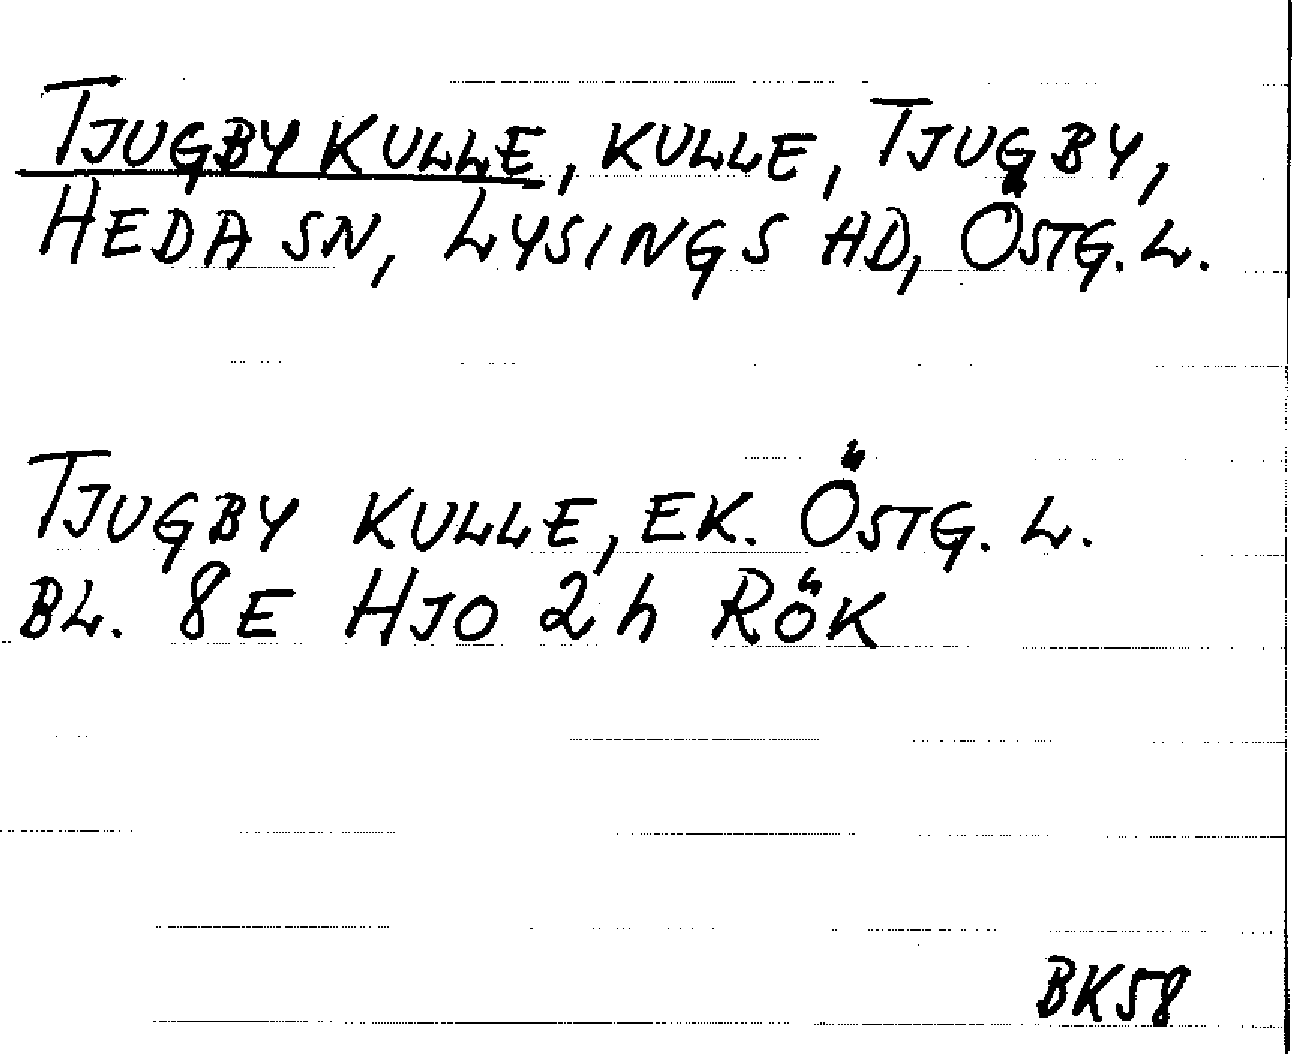 TJUGBY KULLE, KULLE, TJUGBY,
HEDA SN, LYSINGS HD, ÖSTG. L.
TJUGBY KULLE, EK. ÖSTG. L.
BL. 8E HJO 2h RÖK
BK58